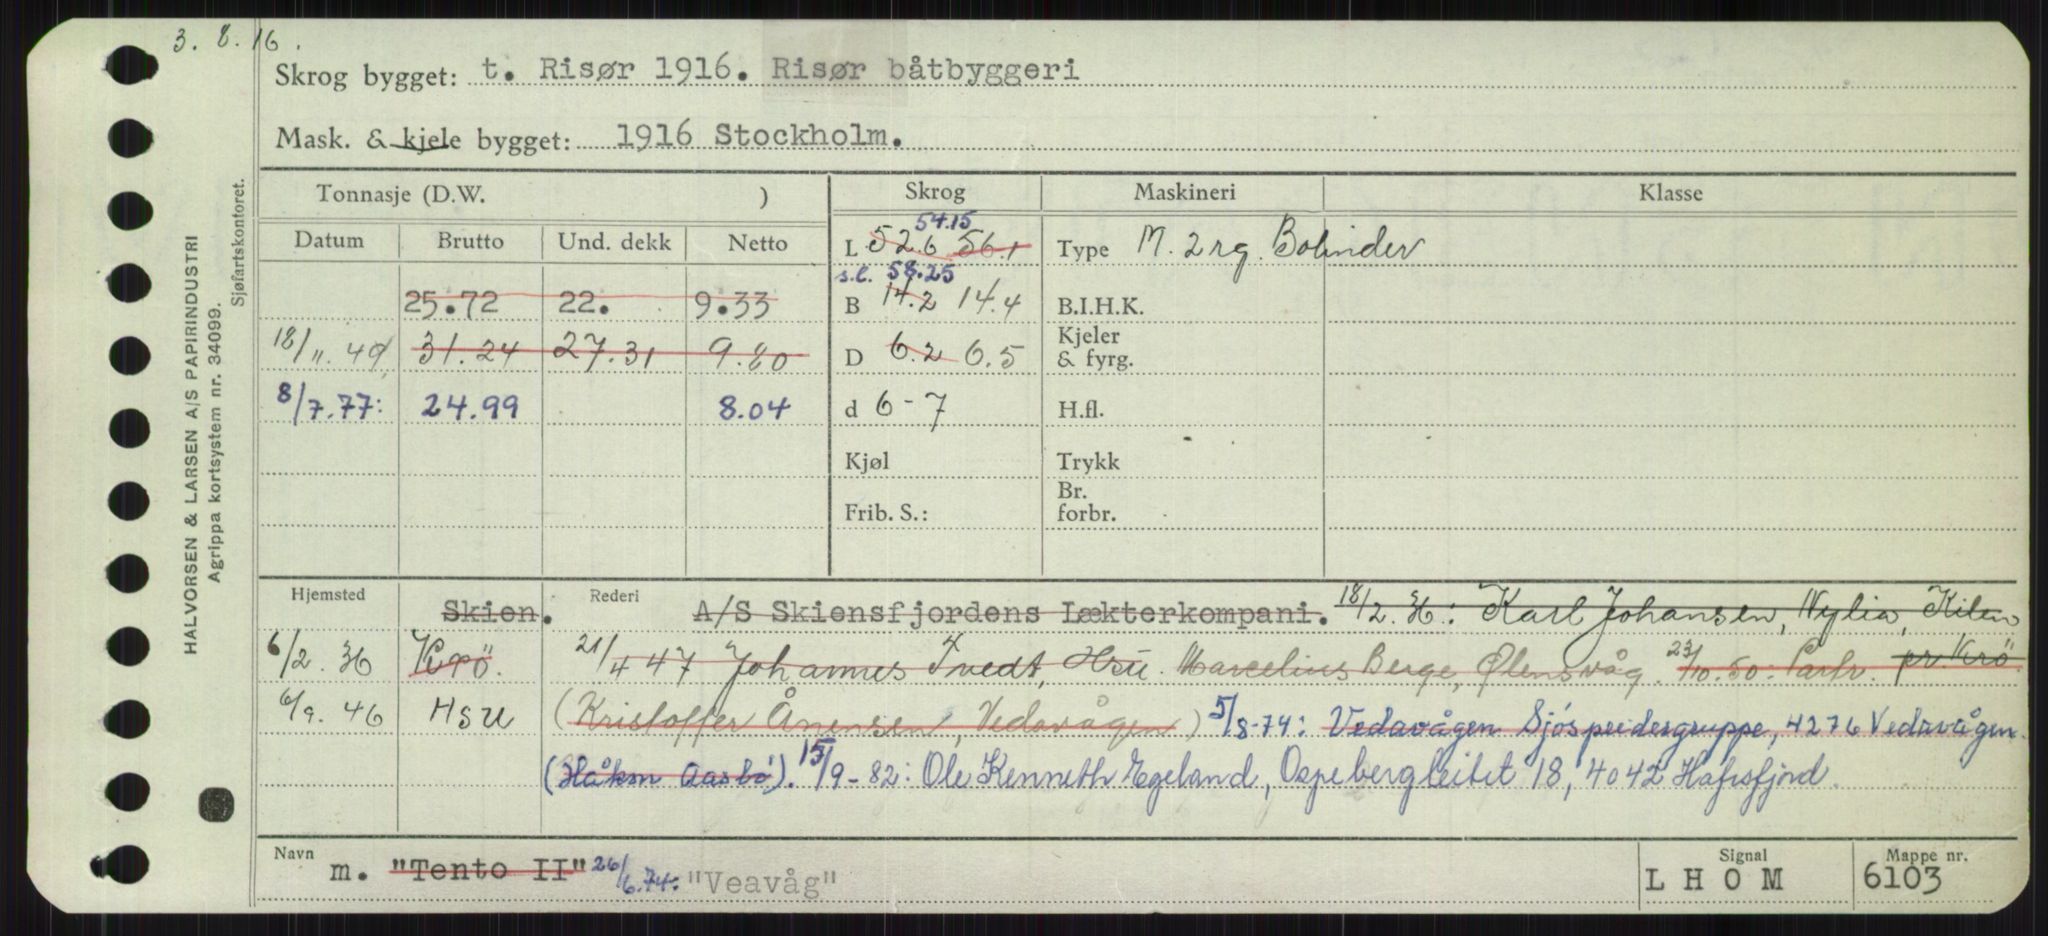 3. 8. 16.
Skrog bygget: t. Risør 1916. Risør båtbyggeri
Mask. & kjele bygget: 1916 Stockholm.
Tonnasje (D.W. ) Skrog Maskineri Klasse
Datum Brutto Und. dekk Netto
54.15
L 52.6 56.1 Type M. 2 rg. Bolinder
s.l. 58.25
25.72 22. 9.33 B 14.2 14.4 B.I.H.K.
18/11.49 31.24 27.31 9.80 D 6.2 6.5 Kjeler & fyrg.
8/7.77: 24.99 8.04 d 6-7 H.fl.
Kjøl Trykk
Frib. S.: Br. forbr.
Hjemsted Skien. Rederi A/S Skiensfjordens Lækterkompani. 18/2.36: Karl Johansen, Nylia, Kilen
6/2.36 Krö. 21/4 47 Johannes Tvedt, Hsu. Marcelius Berge, Ølensvåg. 23/10.50: Partr. pr. Krö.
6/9.46 Hsu (Kristoffer Ånensen, Vedavågen) 5/8-74: Vedavågen Sjöspeidergruppe, 4276 Vedavågen.
(Håkon Aasbö). 15/9-82: Ole Kenneth Egeland, Ospebergleitet 18, 4042 Hafrsfjord.
Navn m. "Tento II" 26/6.74: "Veavåg" Signal LHOM Mappe nr. 6103
HALVORSEN & LARSEN A/S PAPIRINDUSTRI
Agrippa kortsystem nr. 34099.
Sjøfartskontoret.